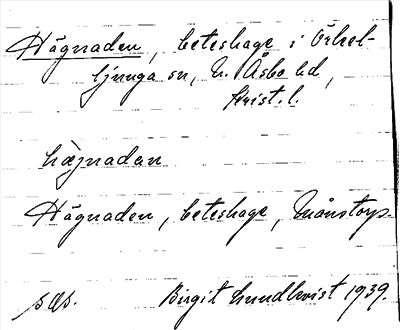 Hägnaden, beteshage i Örkel-
ljunga sn, N. Åsbo hd,
Krist. l.
hæjnadan
Hägnaden, beteshage, Månstorp.
sås. Birgit Lundkvist 1939.